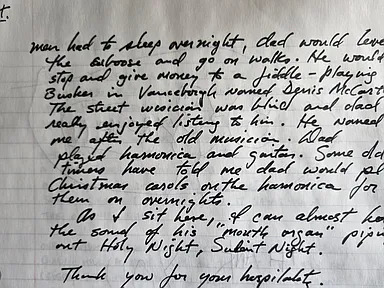 t.
men had to sleep overnight, dad would leave
the caboose and go on walks. He would
stop and give money to a fiddle-playing
Busker in Vanceborgh named Denis McCart
The street musician was blind and dad
really enjoyed listing to him. He named
me after the old musician. Dad
played harmonica and guitar. Some old
timers have told me dad would pl
Christmas carols on the harmonica for
them on overnights.
As I sit here, I can almost he
the sound of his "mouth organ" pipin
out Holy Night, Silent Night.
Thank you for your hospitalit.